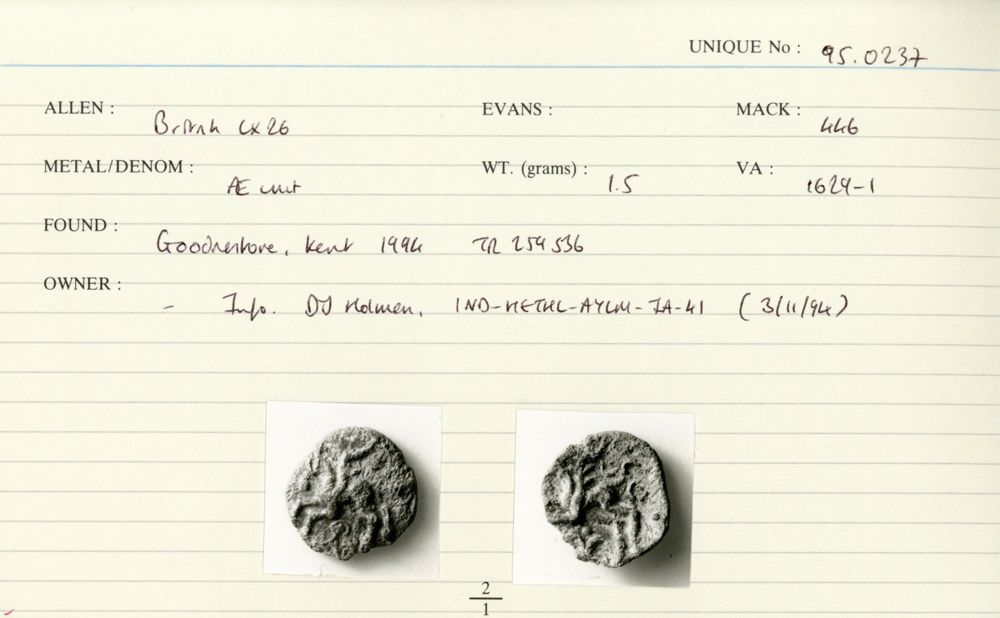 UNIQUE No : 95.0237
ALLEN : British LX 26 EVANS : MACK : 446
METAL/DENOM : Æ unit WT. (grams) : 1.5 VA : 1629-1
FOUND : Goodnestone, Kent 1994 TR 254 536
OWNER : - Info. DJ Holman, IND-METHL-AYLM-IA-41 (3/11/94)
2
1